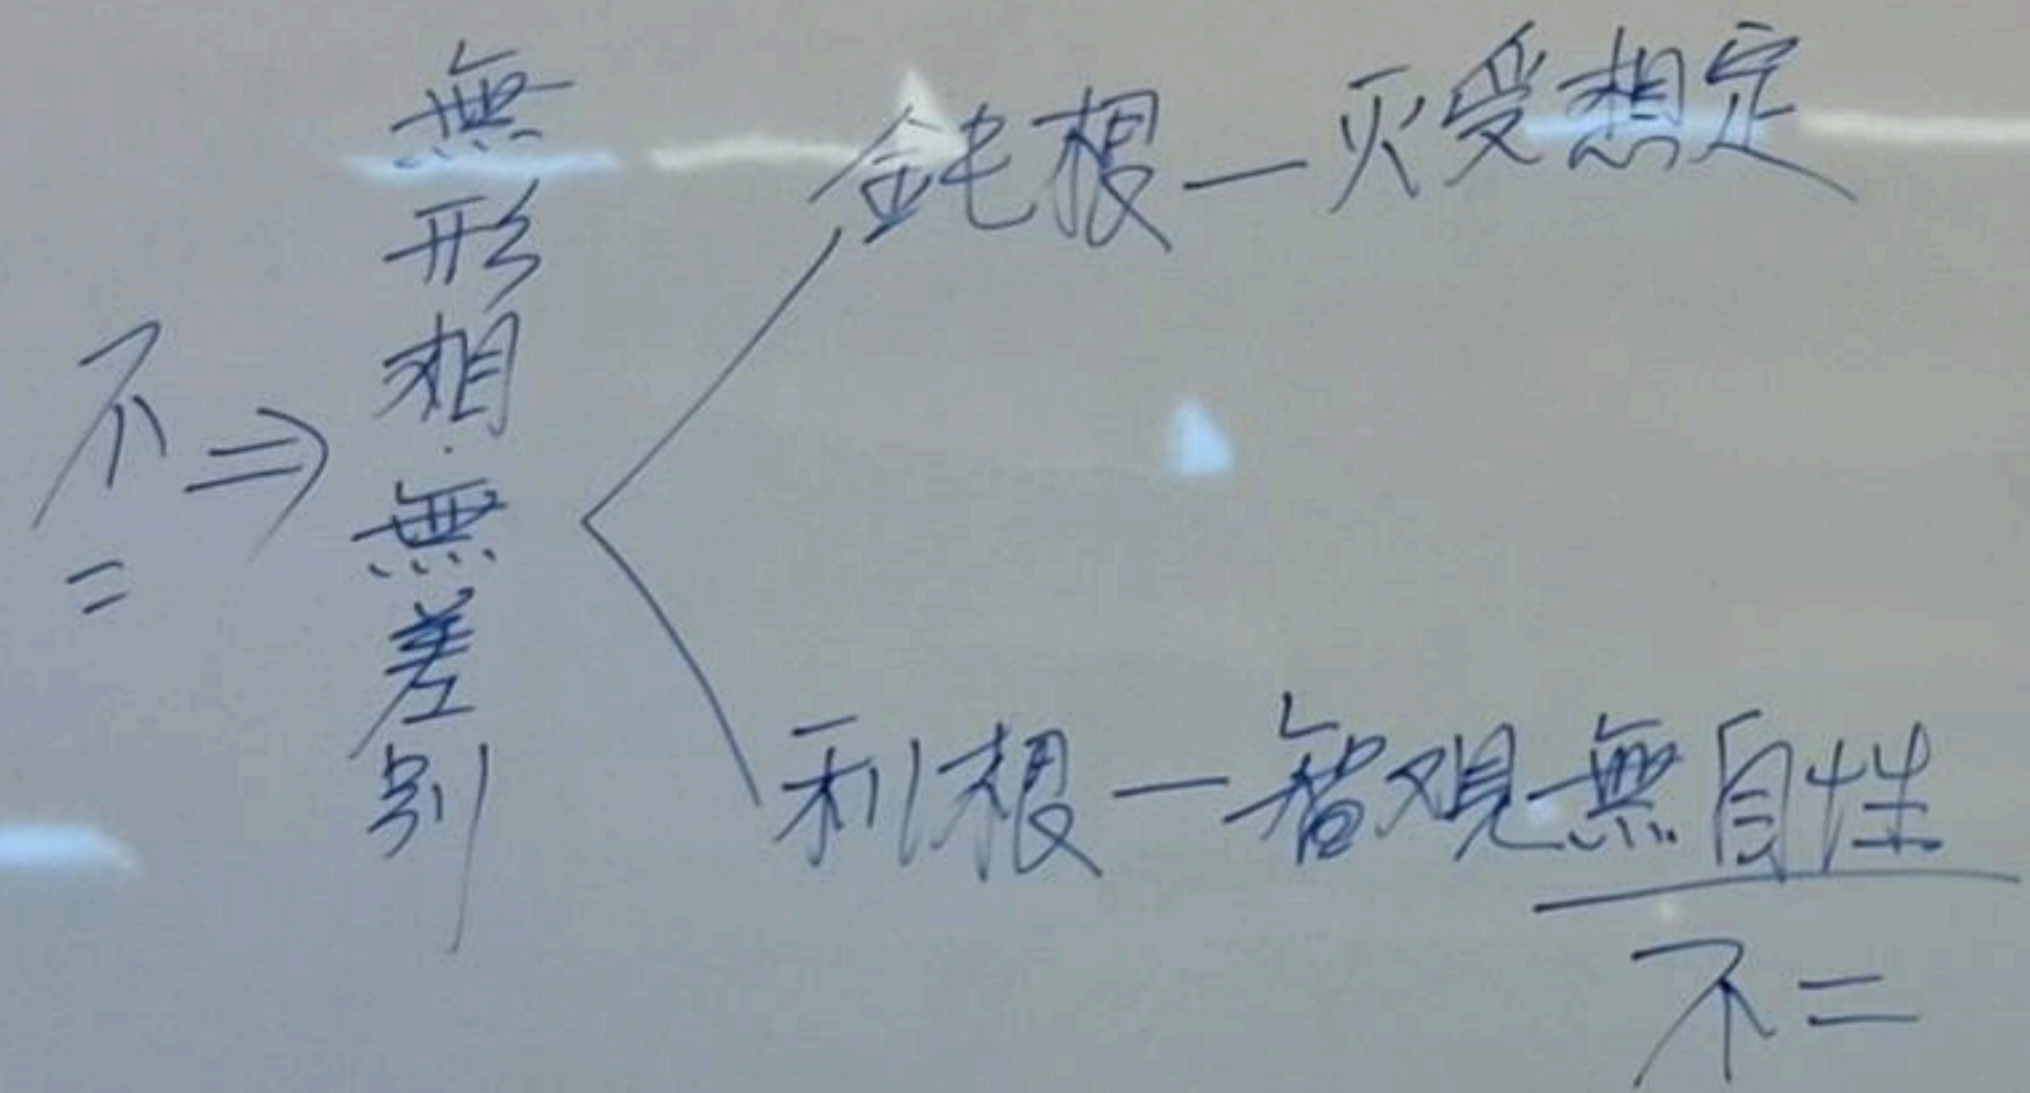 不二⇒
無形相.無差別
鈍根—灭受想定
利根—智观無自性
不二